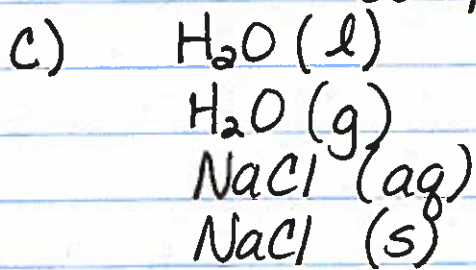 c) H₂O (l)
H₂O (g)
NaCl (aq)
NaCl (s)